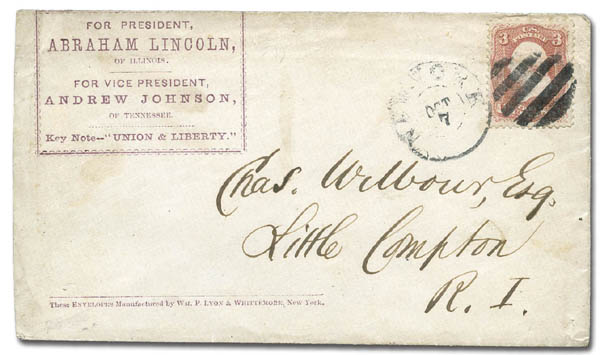 FOR PRESIDENT,
ABRAHAM LINCOLN,
OF ILLINOIS.
FOR VICE PRESIDENT,
ANDREW JOHNSON,
OF TENNESSEE.
Key Note--"UNION & LIBERTY."
NEW-YORK
OCT
7
3 U.S. 3
POSTAGE
Chas. Wilbour, Esq.
Little Compton
R. I.
These ENVELOPES Manufactured by WM. P. LYON & WHITTEMORE, New York.